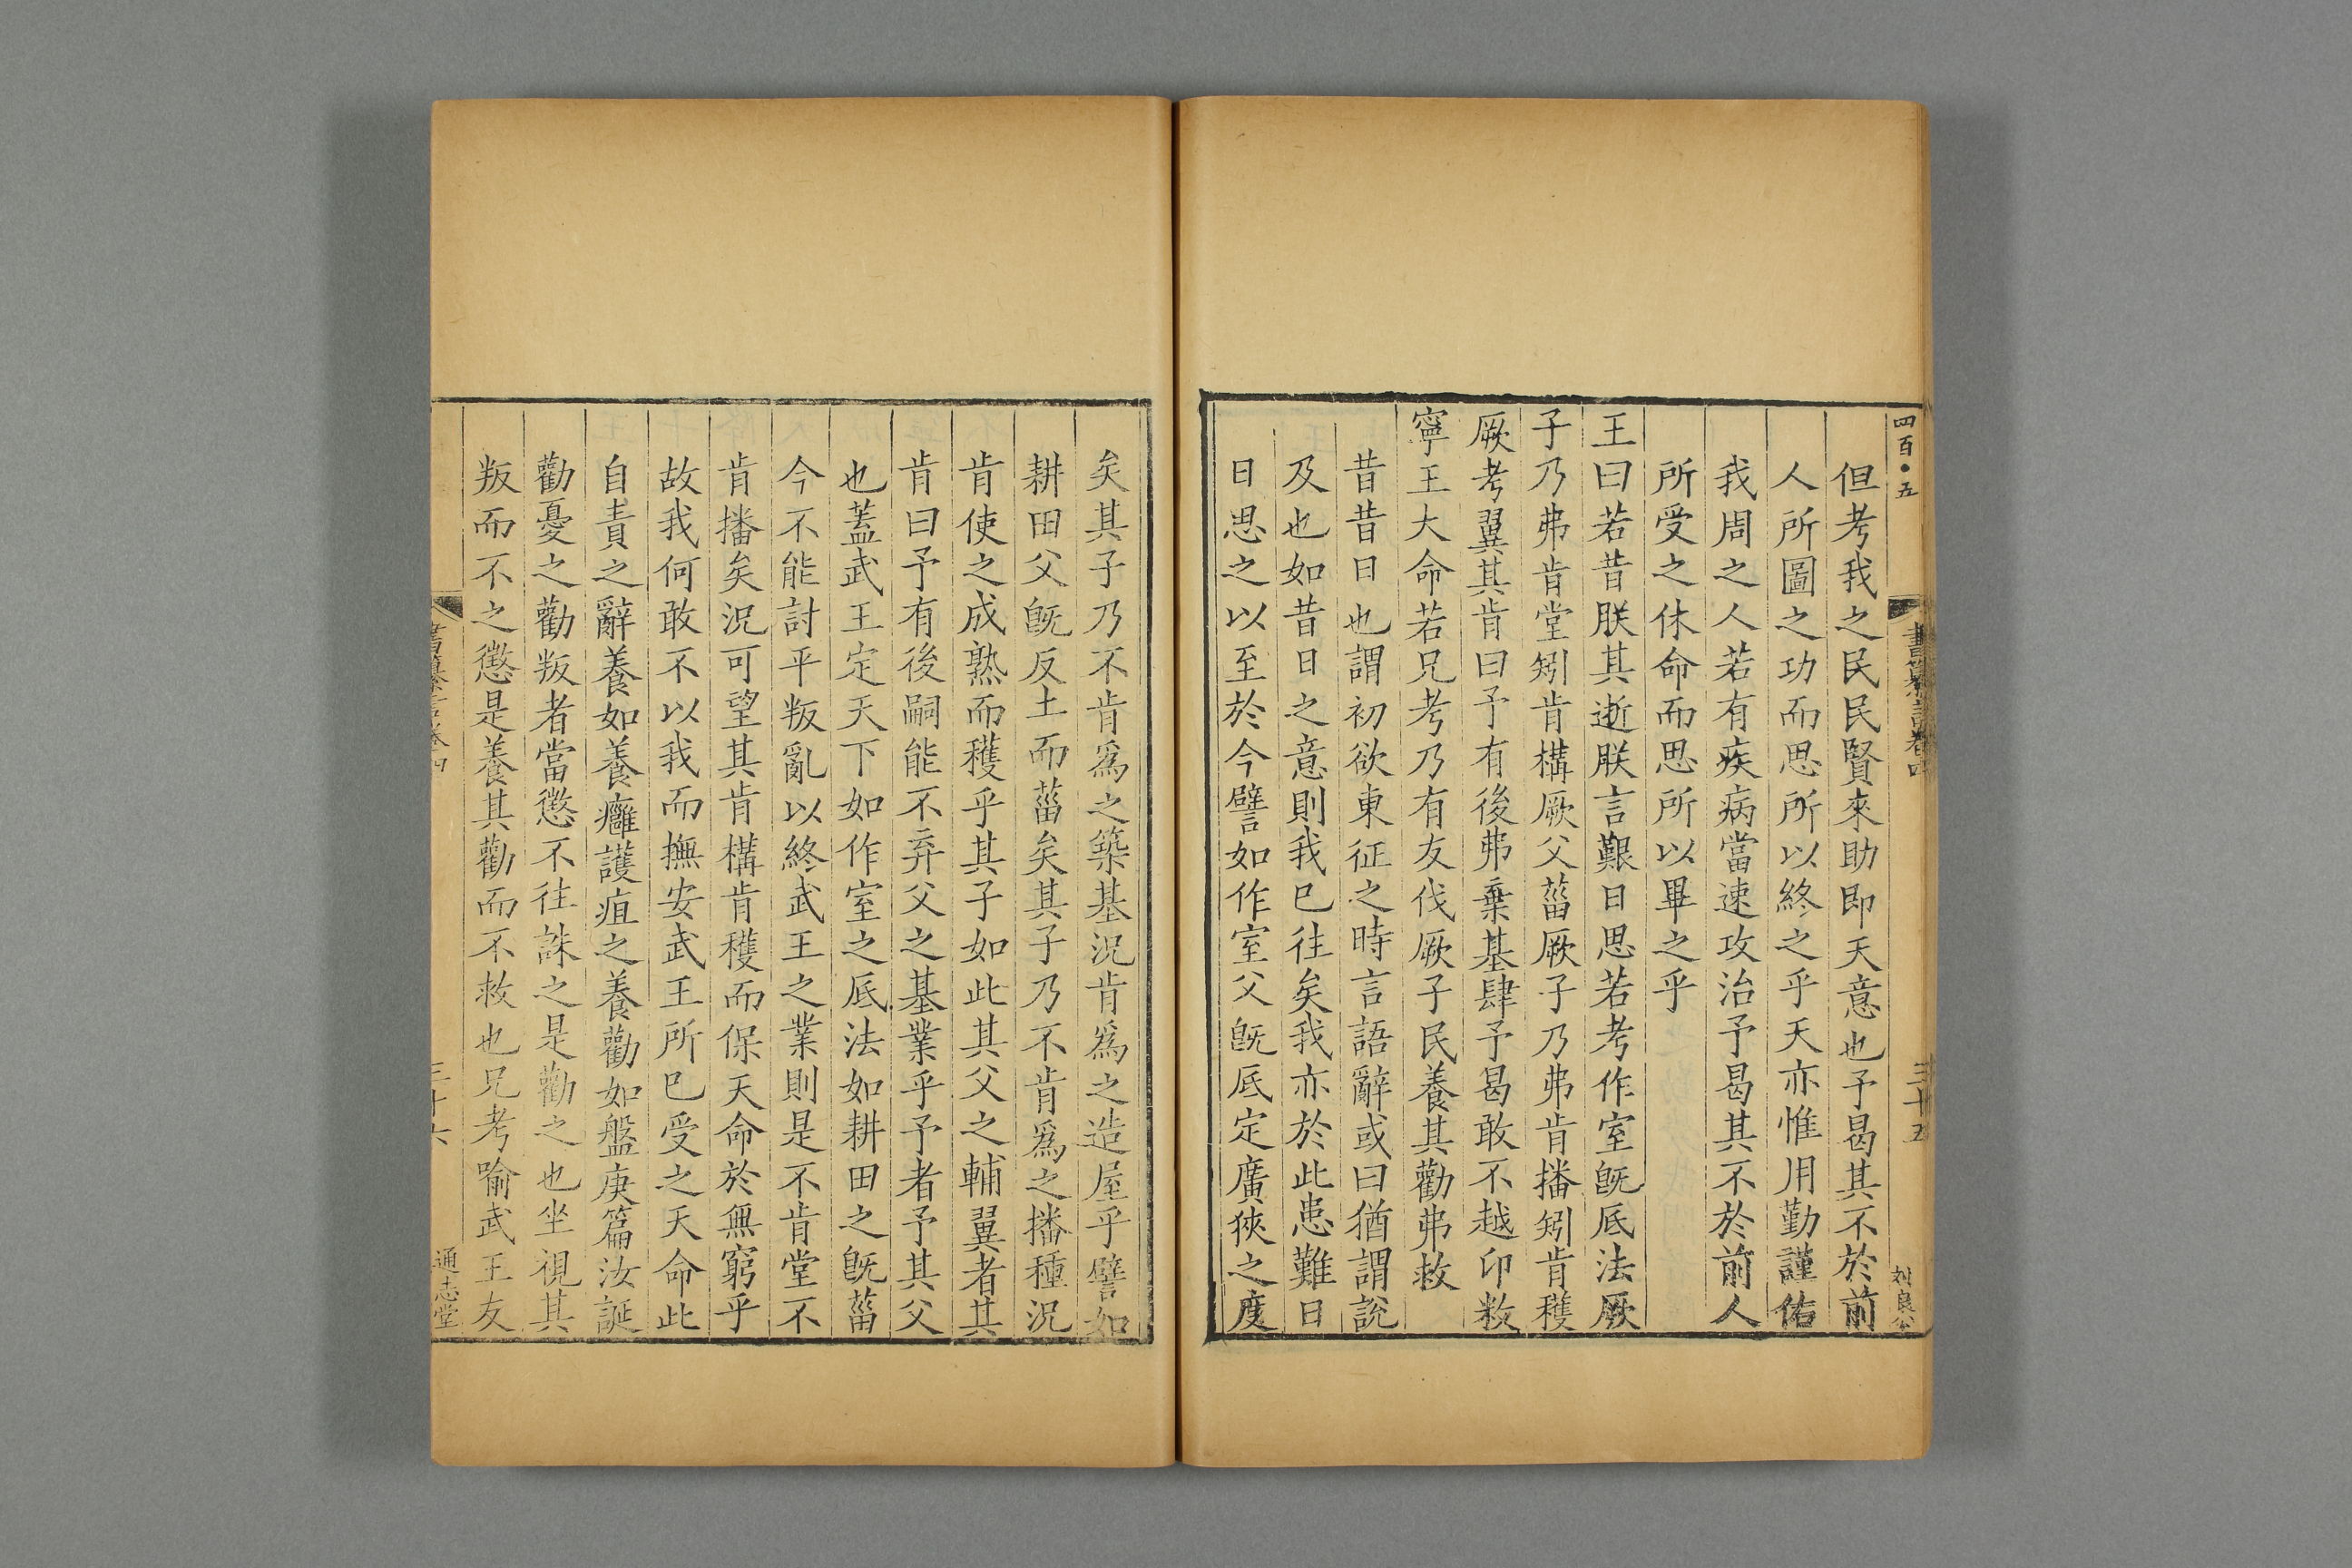 四百五
書纂言卷四
三十五
但考我之民民賢來助即天意也予曷其不於前
人所圖之功而思所以終之乎天亦惟用勤謹佑
我周之人若有疾病當速攻治予曷其不於前人
所受之休命而思所以畢之乎
王曰若昔朕其逝朕言艱日思若考作室旣厎法厥
子乃弗肯堂矧肯構厥父菑厥子乃弗肯播矧肯穫
厥考翼其肯曰予有後弗棄基肆予曷敢不越卬敉
寧王大命若兄考乃有友伐厥子民養其勸弗救
昔昔日也謂初欲東征之時言語辭或曰猶謂說
及也如昔日之意則我巳往矣我亦於此患難日
日思之以至於今譬如作室父旣厎定廣狹之度
矣其子乃不肯爲之築基況肯爲之造屋乎譬如
耕田父旣反土而菑矣其子乃不肯爲之播種況
肯使之成熟而穫乎其子如此其父之輔翼者其
肯曰予有後嗣能不弃父之基業乎予者予其父
也蓋武王定天下如作室之厎法如耕田之旣菑
今不能討平叛亂以終武王之業則是不肯堂不
肯播矣況可望其肯構肯穫而保天命於無窮乎
故我何敢不以我而撫安武王所巳受之天命此
自責之辭養如養癰護疽之養勸如盤庚篇汝誕
勸憂之勸叛者當懲不往誅之是勸之也坐視其
叛而不之懲是養其勸而不救也兄考喻武王友
書纂言卷四
三十六
通志堂